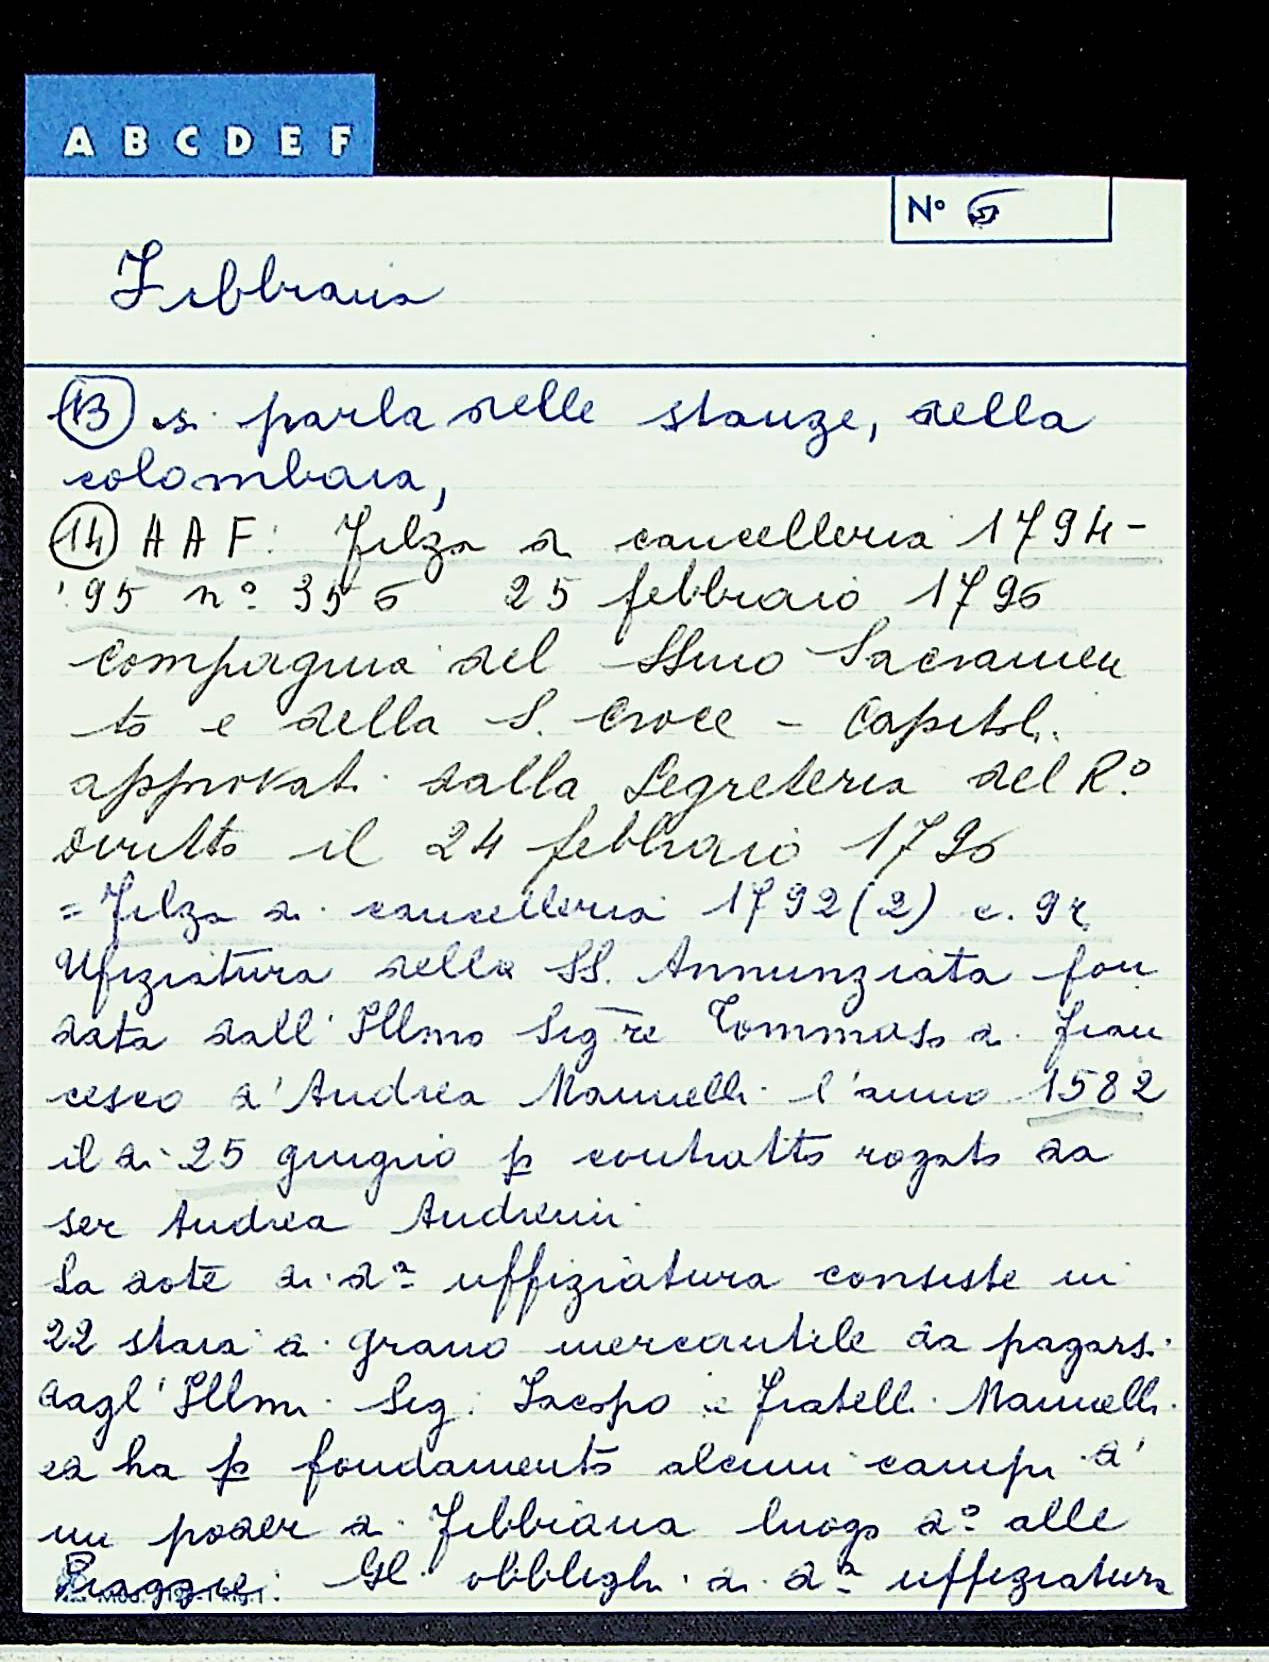 A B C D E F
N° 5
Febbiana
13 si parla delle stanze, della
colombaia,
14 A A F: Filza di cancelleria 1794-
'95 n° 356 25 febbraio 1796
Compagnia del SSmo Sacramen
to e della S. Croce - Capitoli
approvati dalla Segreteria del R°
Diritto il 24 febbraio 1796
= Filza di cancelleria 1792 (2) c. 94
Ufiziatura della SS. Annunziata fon
data dall' Illmo Sigre Tommaso di Fran
cesco d'Andrea Mannelli l'anno 1582
il di 25 giugno p contratto rogato da
ser Andrea Andreini
La dote di da uffiziatura consiste in
22 staia di grano mercantile da pagarsi
dagl' Illmi Sig. Iacopo e fratelli Mannelli
ed ha p fondamento alcuni campi d'
un poder di Febbiana luogo do alle
Piaggie. Gl obblighi di da uffiziatura